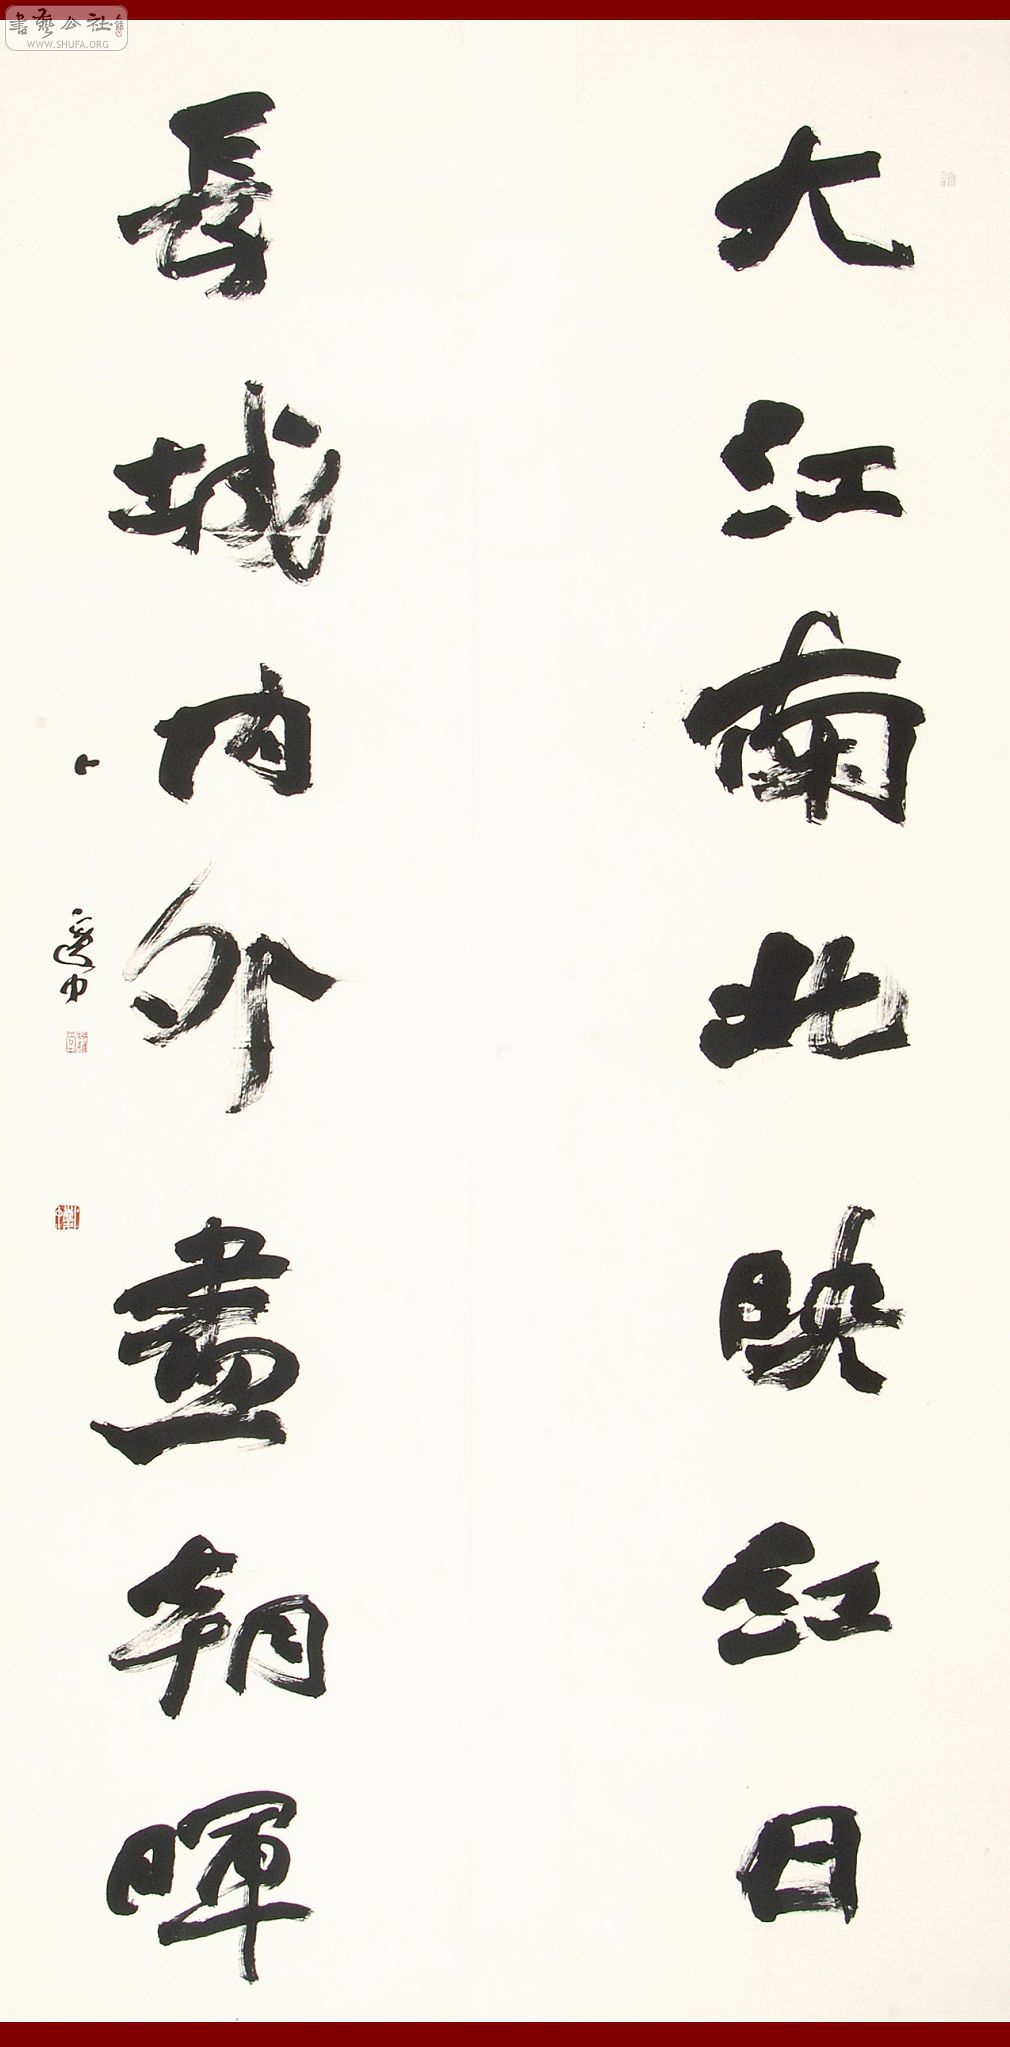 書藝公社
WWW.SHUFA.ORG
大江南北映紅日
長城内外盡朝暉